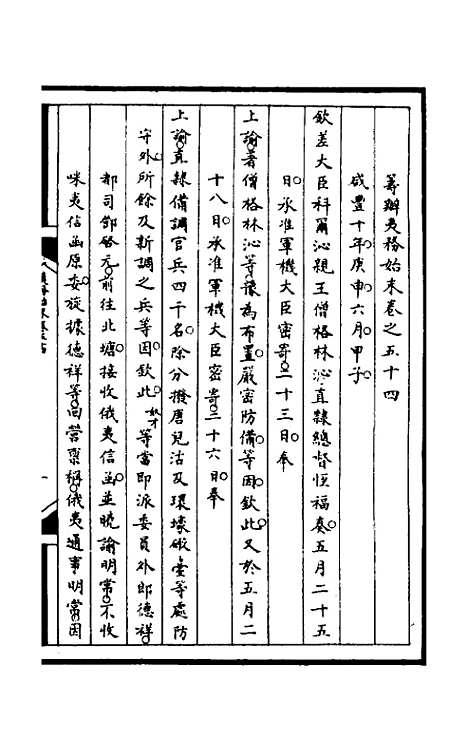 籌辦夷務始末卷之五十四
咸豐十年庚申六月甲子
欽差大臣科爾沁親王僧格林沁直隸總督恆福奏五月二十五
日承准軍機大臣密寄二十三日奉
上諭著僧格林沁等豫為布置嚴密防備等因欽此又於五月二
十八日承准軍機大臣密寄二十六日奉
上諭直隸備調官兵四千名除分撥唐兒沽及環壕礮臺等處防
守外所餘及新調之兵等因欽此奴才等當即派委員外郎德祥
都司鄧啓元前往北塘接收俄夷信函並曉諭明常不收
咪夷信函原委旋據德祥等回營稟稱俄夷通事明常因